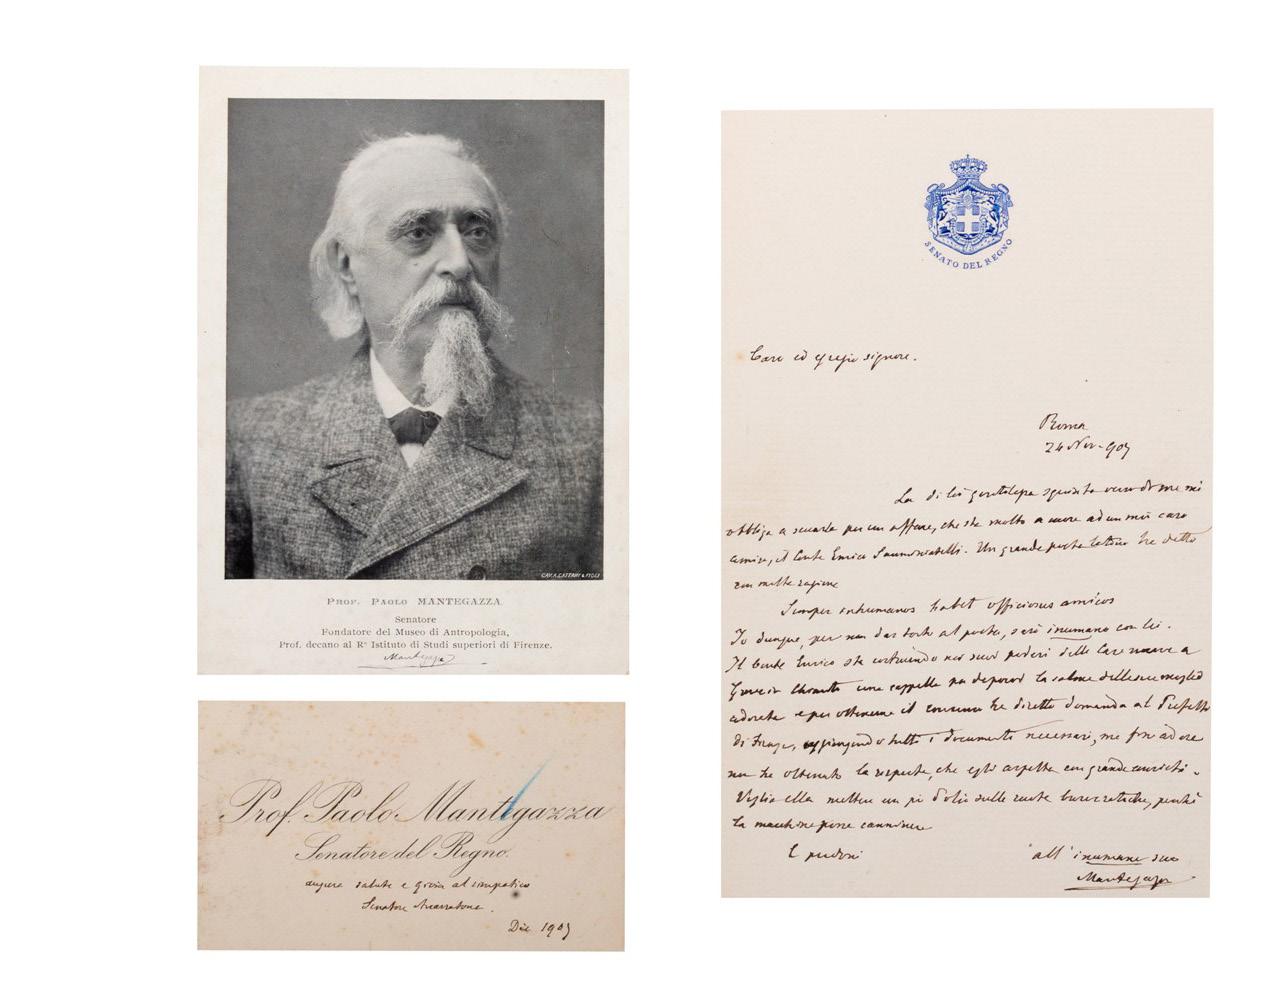 CAV. A. CATTANI & FIGLI
PROF. PAOLO MANTEGAZZA
Senatore
Fondatore del Museo di Antropologia,
Prof. decano al R.º Istituto di Studi superiori di Firenze.
Mantegazza
Prof. Paolo Mantegazza
Senatore del Regno.
augura salute e gioia al simpatico
Senatore
Dic 1905
SENATO DEL REGNO
Caro ed egregio signore.
Roma
24 Nov - 905
La di lei gentilezza squisita verso di me mi
obbliga a seccarla per un affare, che sta molto a cuore ad un mio caro
amico, il Conte Enrico. Un grande poeta latino ha detto
con molta ragione
Semper inhumanos habet officiosus amicos
Io dunque, per non dar torto al poeta, sarò inumano con lei.
Il Conte Enrico sta costruendo nei suoi poderi delle Case nuove a
Greve in Chianti una cappella per deporvi la salma della sua moglie
adorata e per ottenerne il consenso ha diretto domanda al Prefetto
di Firenze, aggiungendo tutti i documenti necessari, ma fin ad ora
non ha ottenuto la risposta, che egli aspetta con grande ansietà.
Voglia ella mettere un pò d'olio sulle ruote burocratiche, perchè
la macchina possa camminare
E perdoni
all' inumano suo
Mantegazza